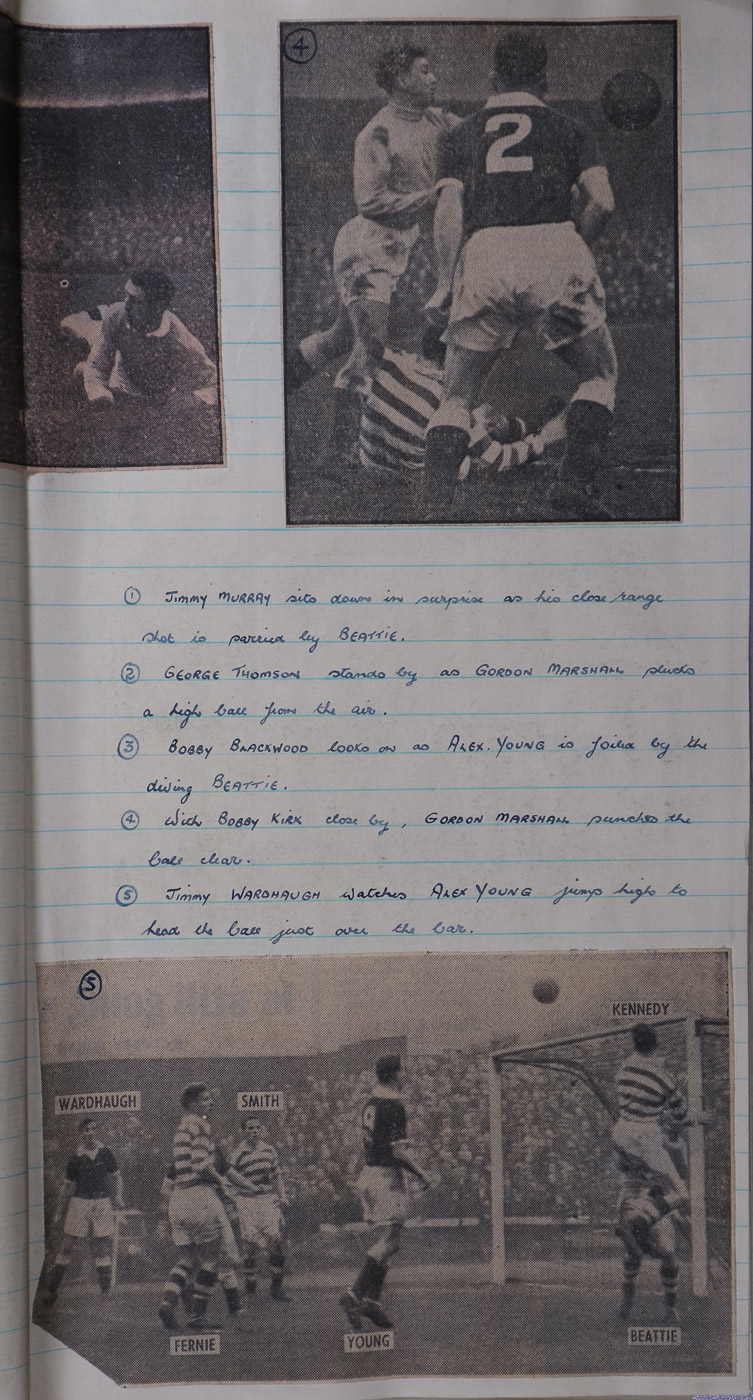 4
2
① Jimmy MURRAY sits down in surprise as his close range
shot is parried by BEATTIE.
② GEORGE THOMSON stands by as GORDON MARSHALL plucks
a high ball from the air.
③ BOBBY BLACKWOOD looks on as ALEX. YOUNG is foiled by the
diving BEATTIE.
④ With BOBBY KIRK close by, GORDON MARSHALL punches the
ball clear.
⑤ Jimmy WARDHAUGH watches ALEX YOUNG jump high to
head the ball just over the bar.
5
KENNEDY
WARDHAUGH
SMITH
FERNIE
YOUNG
BEATTIE